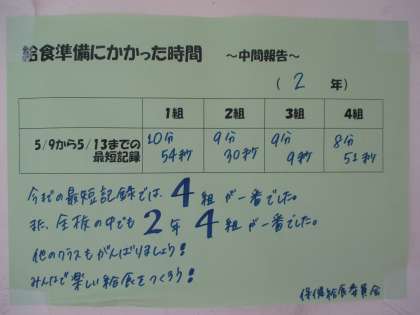 給食準備にかかった時間 ～中間報告～
( 2 年)
1組 2組 3組 4組
5/9から5/13までの最短記録 10分54秒 9分30秒 9分9秒 8分51秒
今までの最短記録では、4組が一番でした。
又、全校の中でも2年4組が一番でした。
他のクラスもがんばりましょう!
みんなで楽しい給食をつくろう!
保健給食委員会